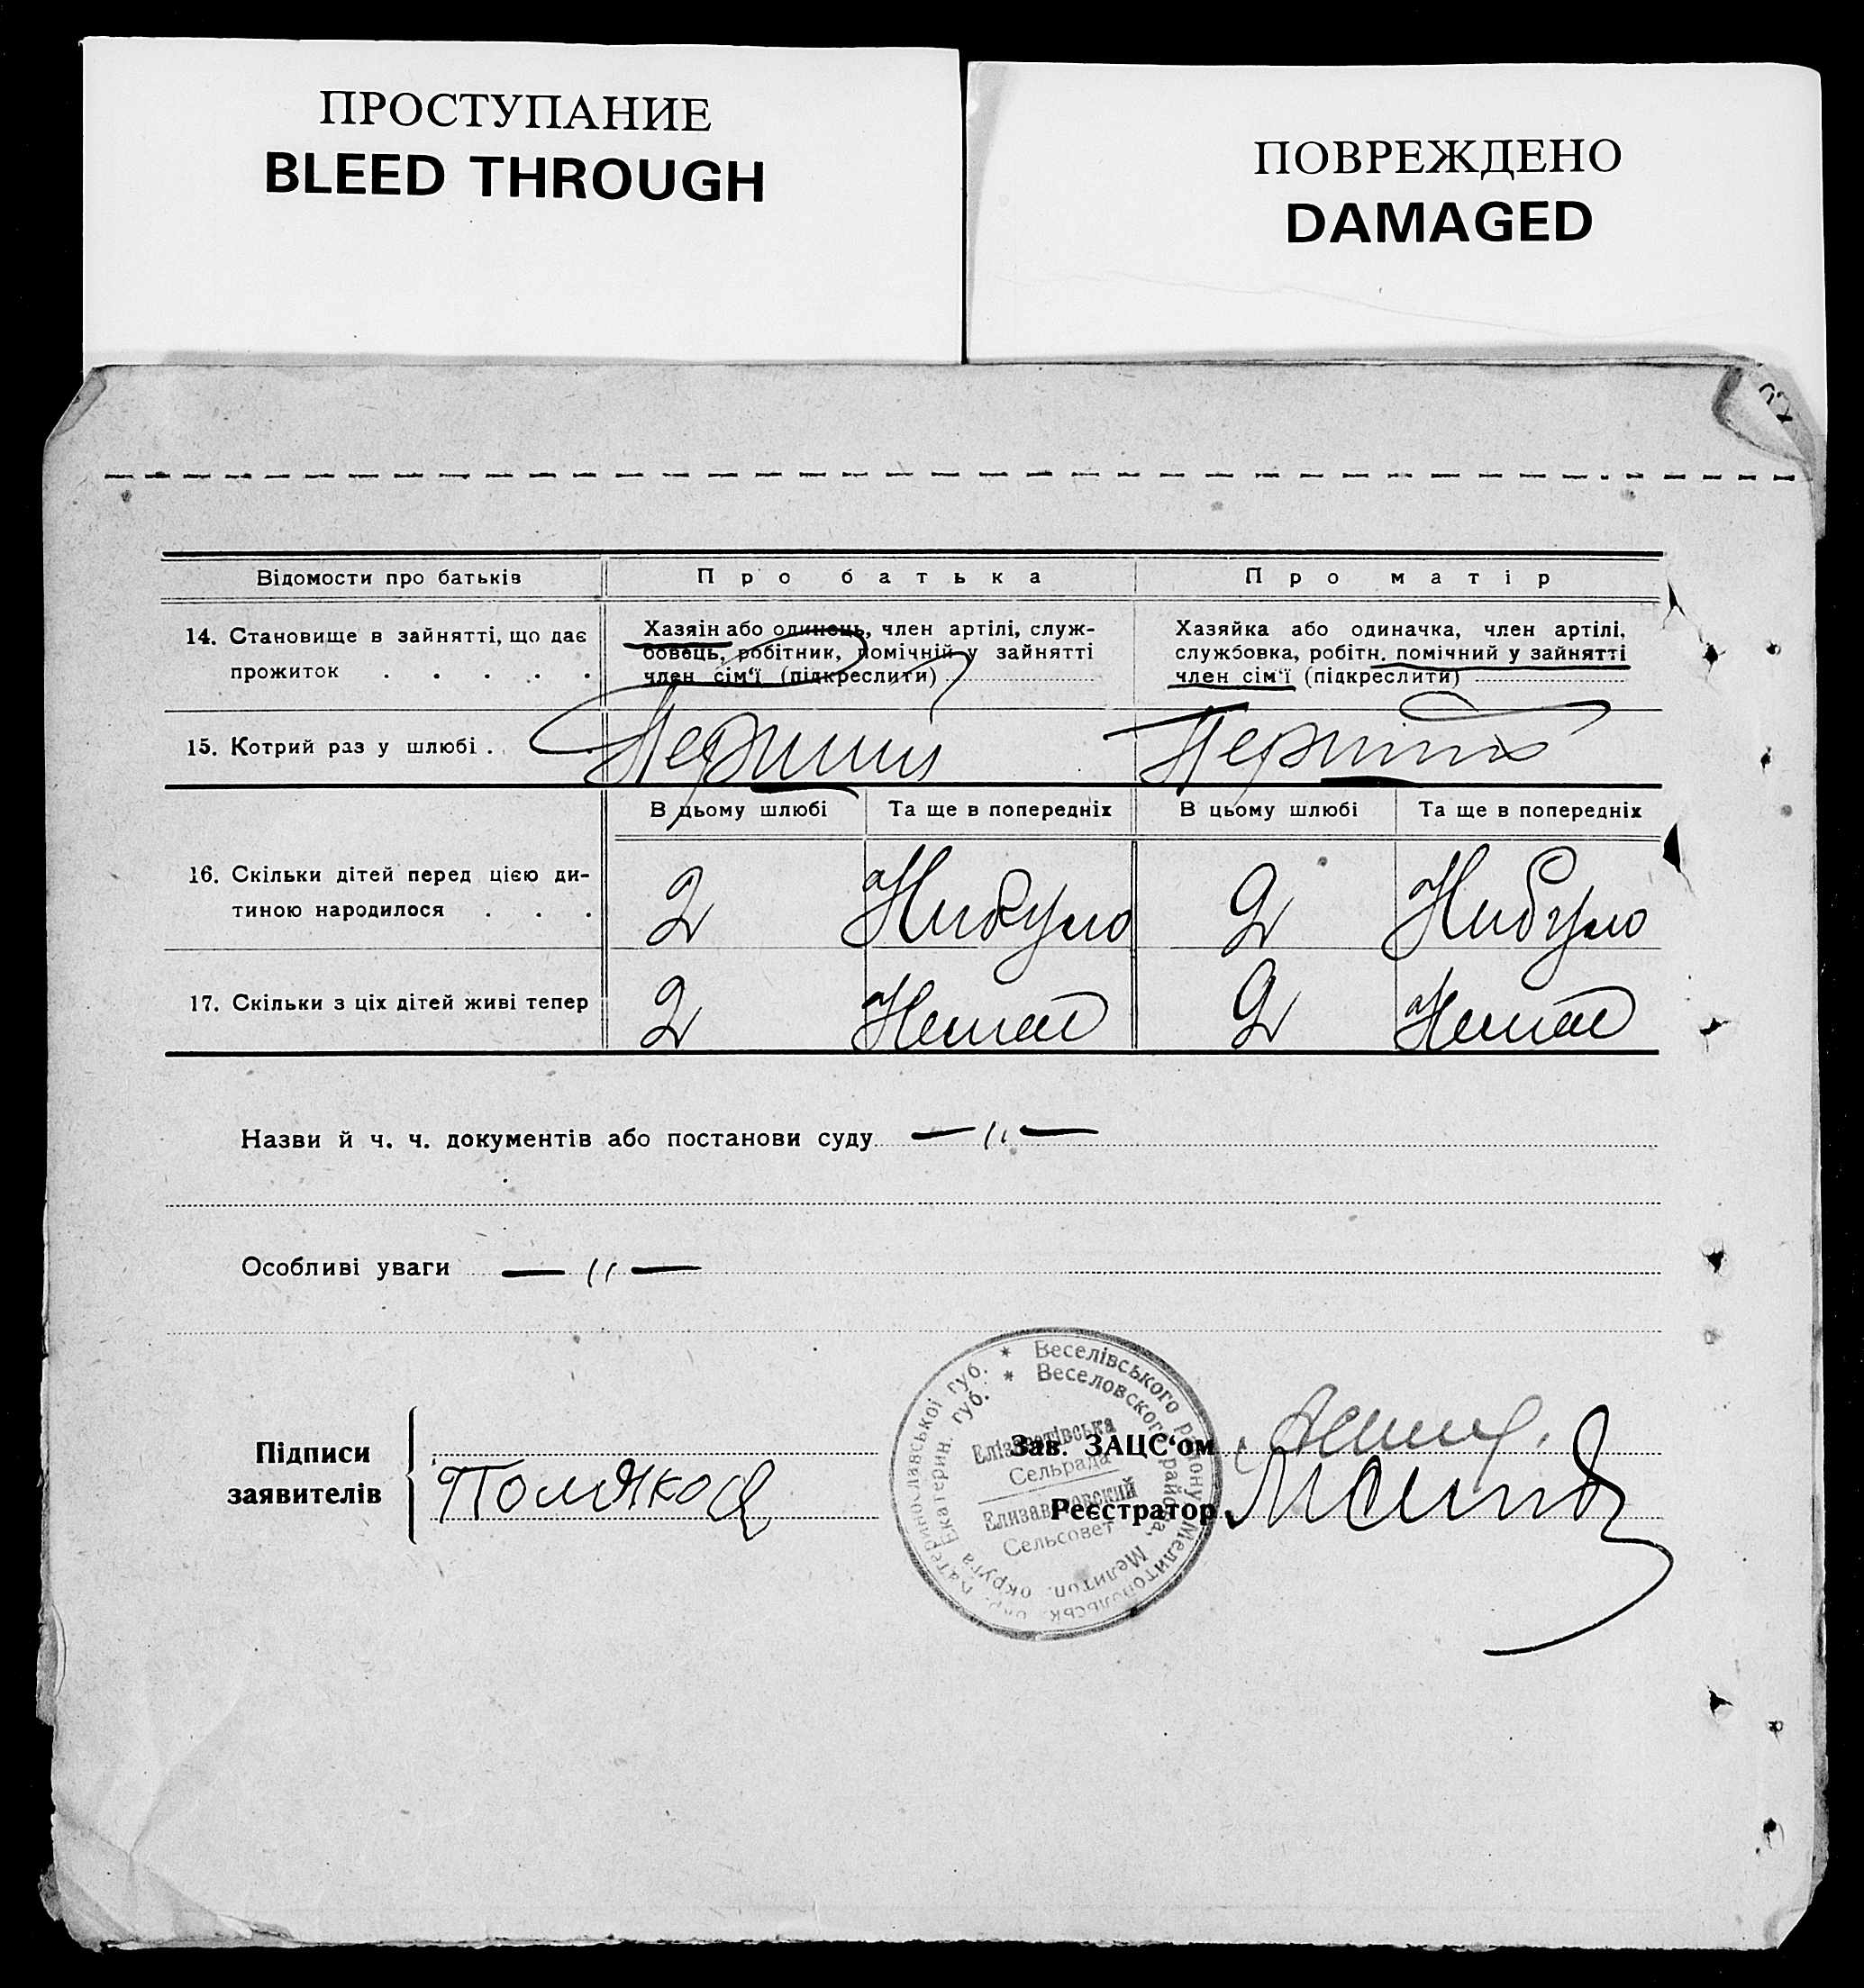 ПРОСТУПАНИЕ
BLEED THROUGH
ПОВРЕЖДЕНО
DAMAGED
Відомости про батьків
Про батька
Про матір
14. Становище в зайнятті, що дає
прожиток . . . . .
Хазяін або одинець, член артілі, служ-
бовець, робітник, помічній у зайнятті
член сім'ї (підкреслити)
Хазяйка або одиначка, член артілі,
службовка, робітн. помічний у зайнятті
член сім'ї (підкреслити)
15. Котрий раз у шлюбі .
Перший
Перший
В цьому шлюбі
Та ще в попередніх
В цьому шлюбі
Та ще в попередніх
16. Скільки дітей перед цією ди-
тиною народилося . . .
2
Нибуло
2
Нибуло
17. Скільки з ціх дітей живі тепер
2
Немає
2
Немає
Назви й ч. ч. документів або постанови суду — " —
Особливі уваги — " —
Підписи
заявителів
Поляков
Зав. ЗАЦС'ом
Реєстратор
* Веселівського району Мелитопольськ. окр. Катеринославської губ.
* Веселовского района, Мелитоп. округа Екатерин. губ.
Елізаветівська
Сельрада
Елизаветовский
Сельсовет